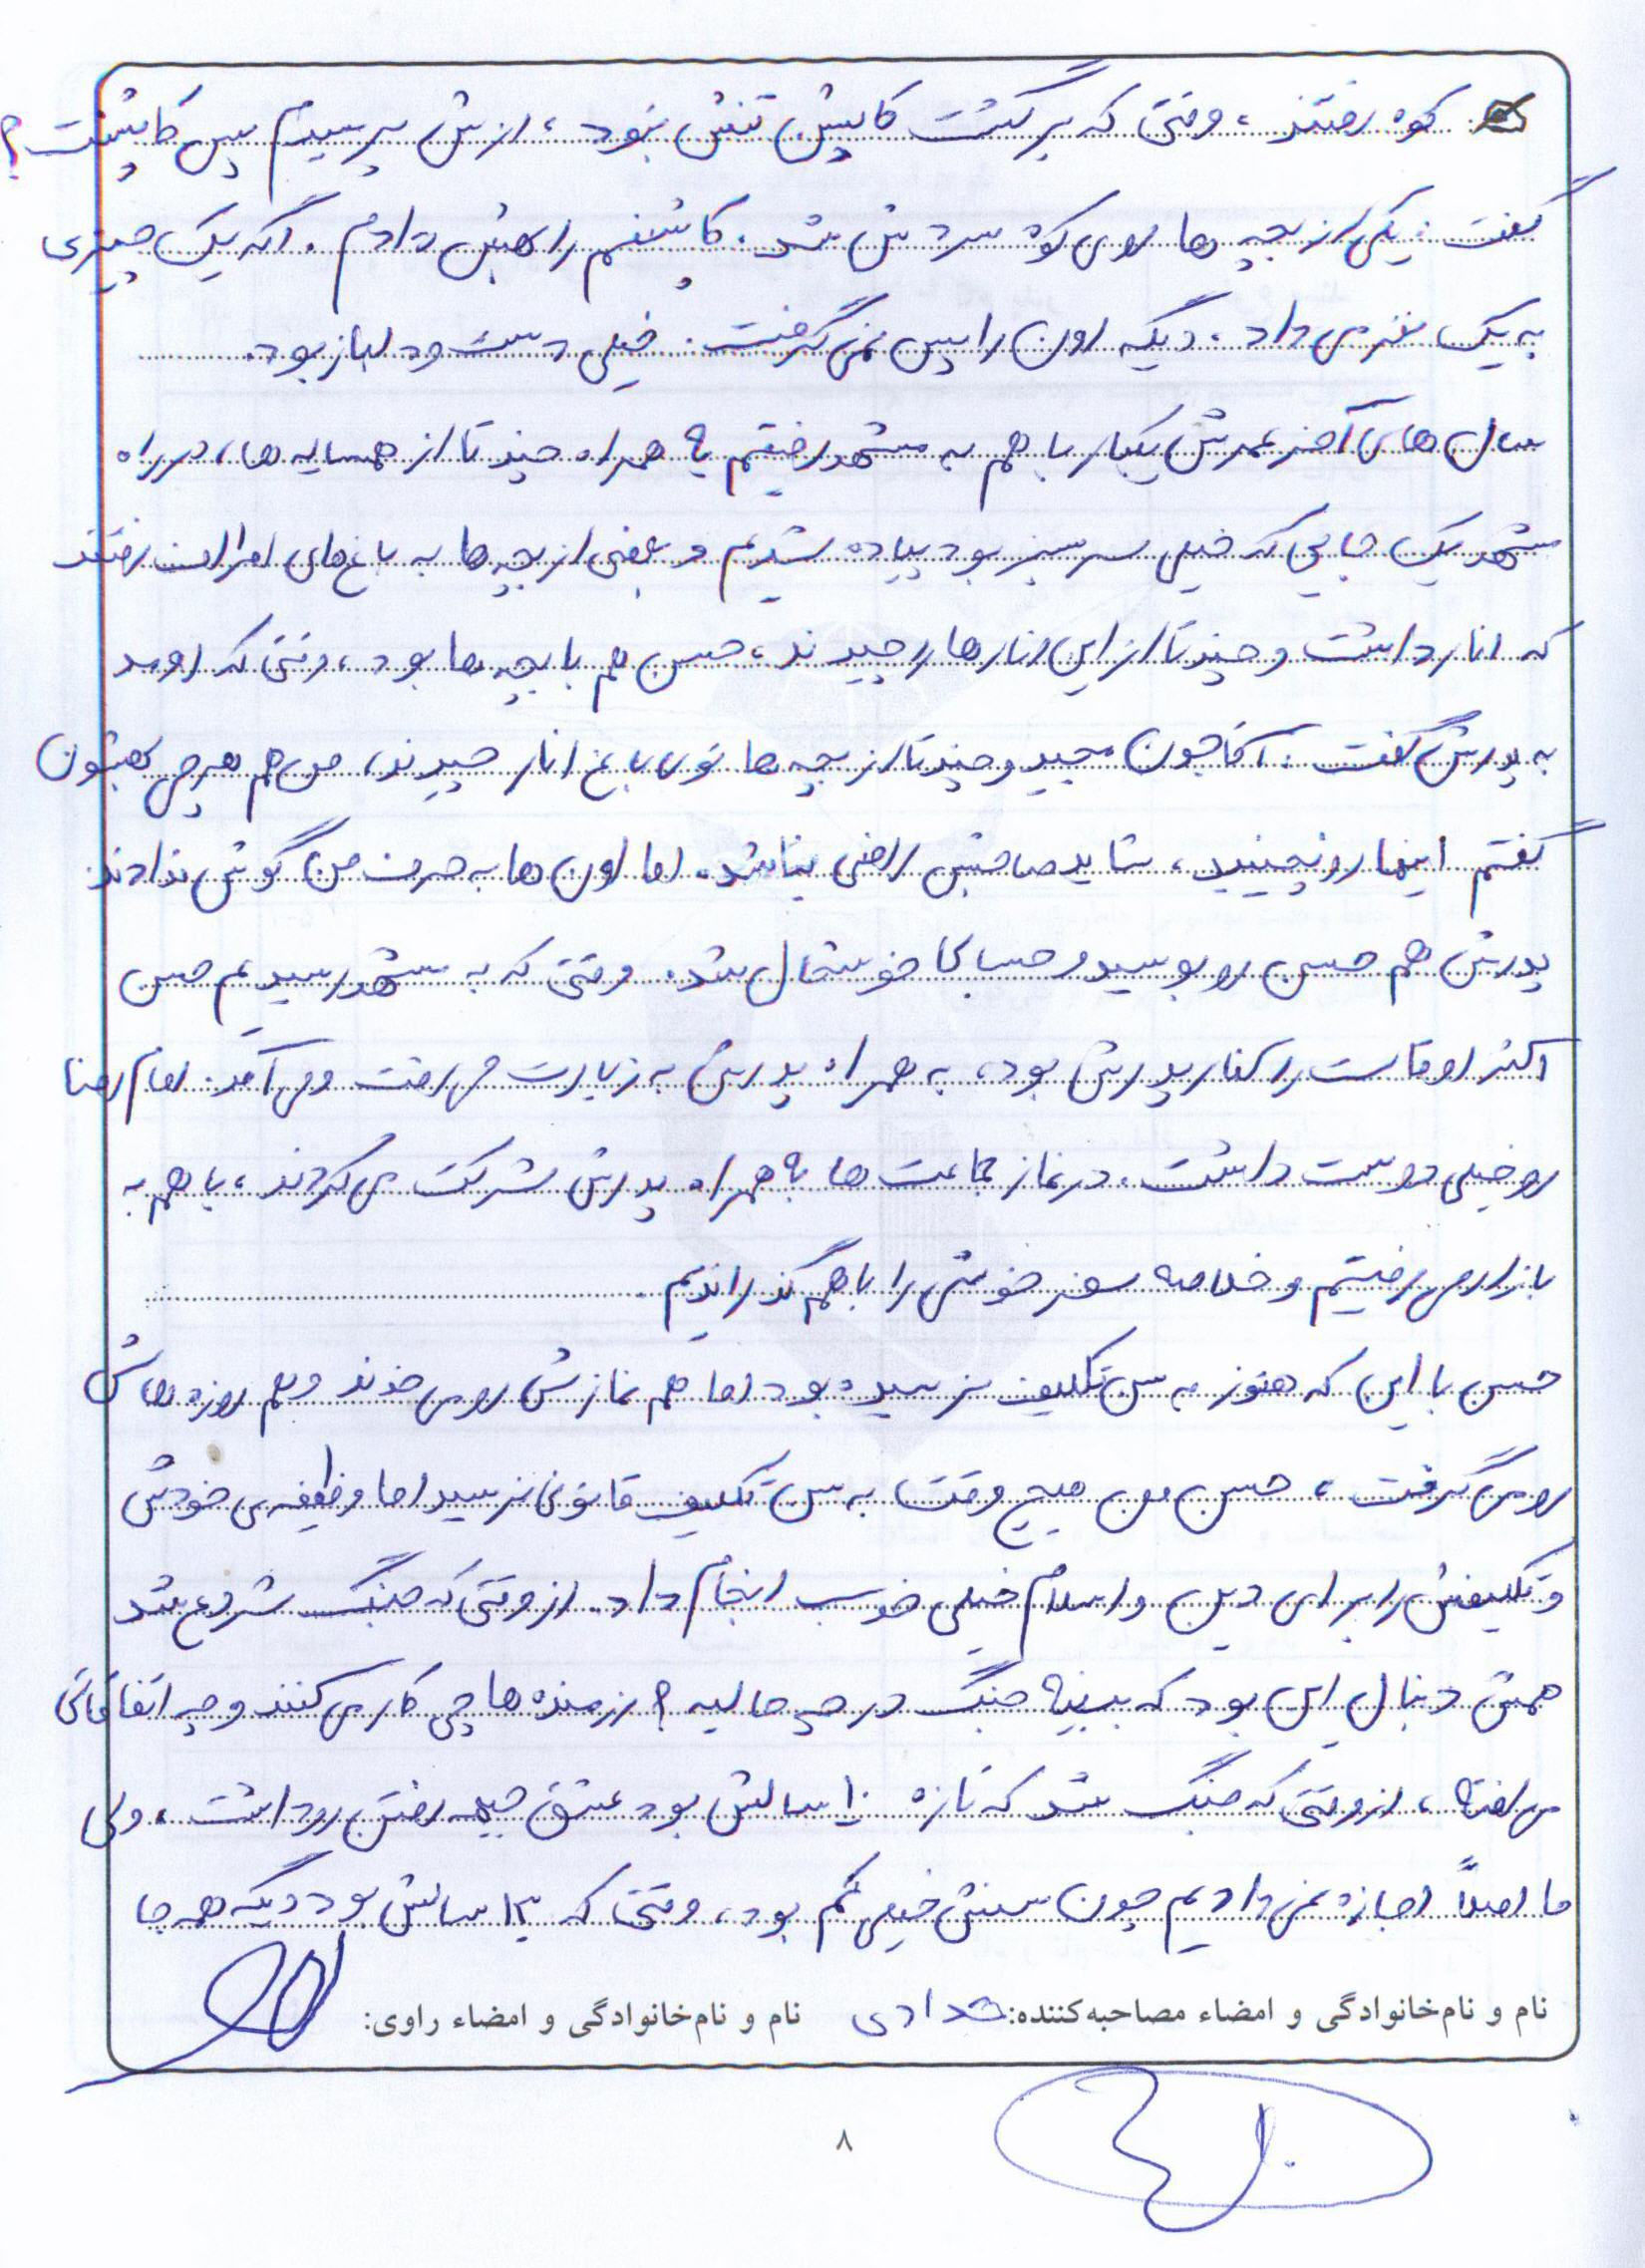 کوه رفتند، وقتی که برگشت کاپشن تنش نبود، ازش پرسیدم پس کاپشنت؟
گفت: یکی از بچه ها روی کوه سردش شد. کاپشنم را بهش دادم. اگه یک چیزی
به یک نفر می داد. دیگه اون را پس نمی گرفت. خیلی دست و دلباز بود.
سال های آخر عمرش یکبار با هم به مشهد رفتیم به همراه چند تا از همسایه ها، در راه
مشهد یک جایی که خیلی سرسبز بود پیاده شدیم و بعضی از بچه ها به باغ های اطراف رفتند
که انار داشت و چند تا از این انارها را چیدند، حسن هم با بچه ها بود، وقتی که اومد
به پدرش گفت: آقاجون مجید و چند تا از بچه ها توی باغ انار چیدند، من هم هرچی بهشون
گفتم اینها رو نچینید، شاید صاحبش راضی نباشد. اما اون ها به حرف من گوش ندادند
پدرش هم حسن رو بوسید و حسابی خوشحال شد. وقتی که به مشهد رسیدیم حسن
اکثر اوقات را کنار پدرش بود، به همراه پدرش به زیارت می رفت و می آمد. امام رضا
رو خیلی دوست داشت. در نماز جماعت ها به همراه پدرش شرکت می کردند، با هم به
بازار می رفتیم و خلاصه سفر خوشی را با هم گذراندیم.
حسن با این که هنوز به سن تکلیف نرسیده بود اما هم نمازش رو می خوند و هم روزه هاش
رو می گرفت، حسن من هیچ وقت به سن تکلیف قانونی نرسید اما وظیفه ی خودش
و تکلیفش را برای دین و اسلام خیلی خوب انجام داد. از وقتی که جنگ شروع شد
همش دنبال این بود که ببینه جنگ در چه حالیه؟ رزمنده ها چی کار می کنند و چه اتفاقاتی
می افته، از وقتی که جنگ شد که تازه ۱۰ سالش بود عشق جبهه رفتن رو داشت، ولی
ما اصلاً اجازه نمی دادیم چون سنش خیلی کم بود، وقتی که ۱۳ سالش بود دیگه همه جا
نام و نام‌خانوادگی و امضاء مصاحبه‌کننده: نام و نام‌خانوادگی و امضاء راوی:
۸